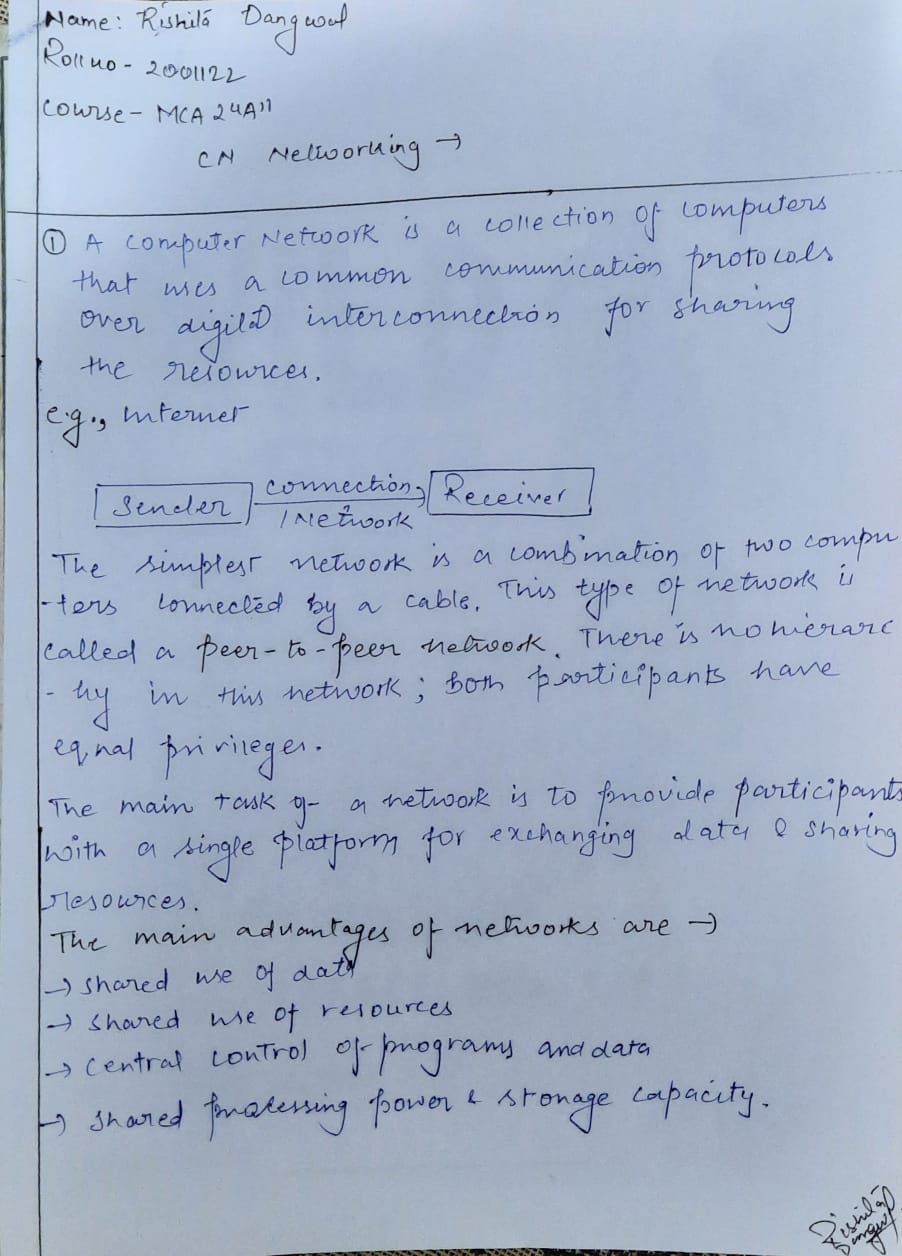 Name: Rishita Dangwal
Roll no - 2001122
Course - MCA 2"A"
CN Networking →
① A Computer Network is a collection of computers
that uses a common communication protocols
over digital interconnection for sharing
the resources.
e.g., Internet
Sender connection Receiver
/ Network
The simplest network is a combination of two compu
-ters connected by a cable. This type of network is
called a peer-to-peer network. There is no hierarc
-hy in this network; both participants have
equal privileges.
The main task of a network is to provide participants
with a single platform for exchanging data & sharing
resources.
The main advantages of networks are →
→ shared use of data
→ shared use of resources
→ Central control of programs and data
→ Shared processing power & storage capacity.
Rishita
Dangwal